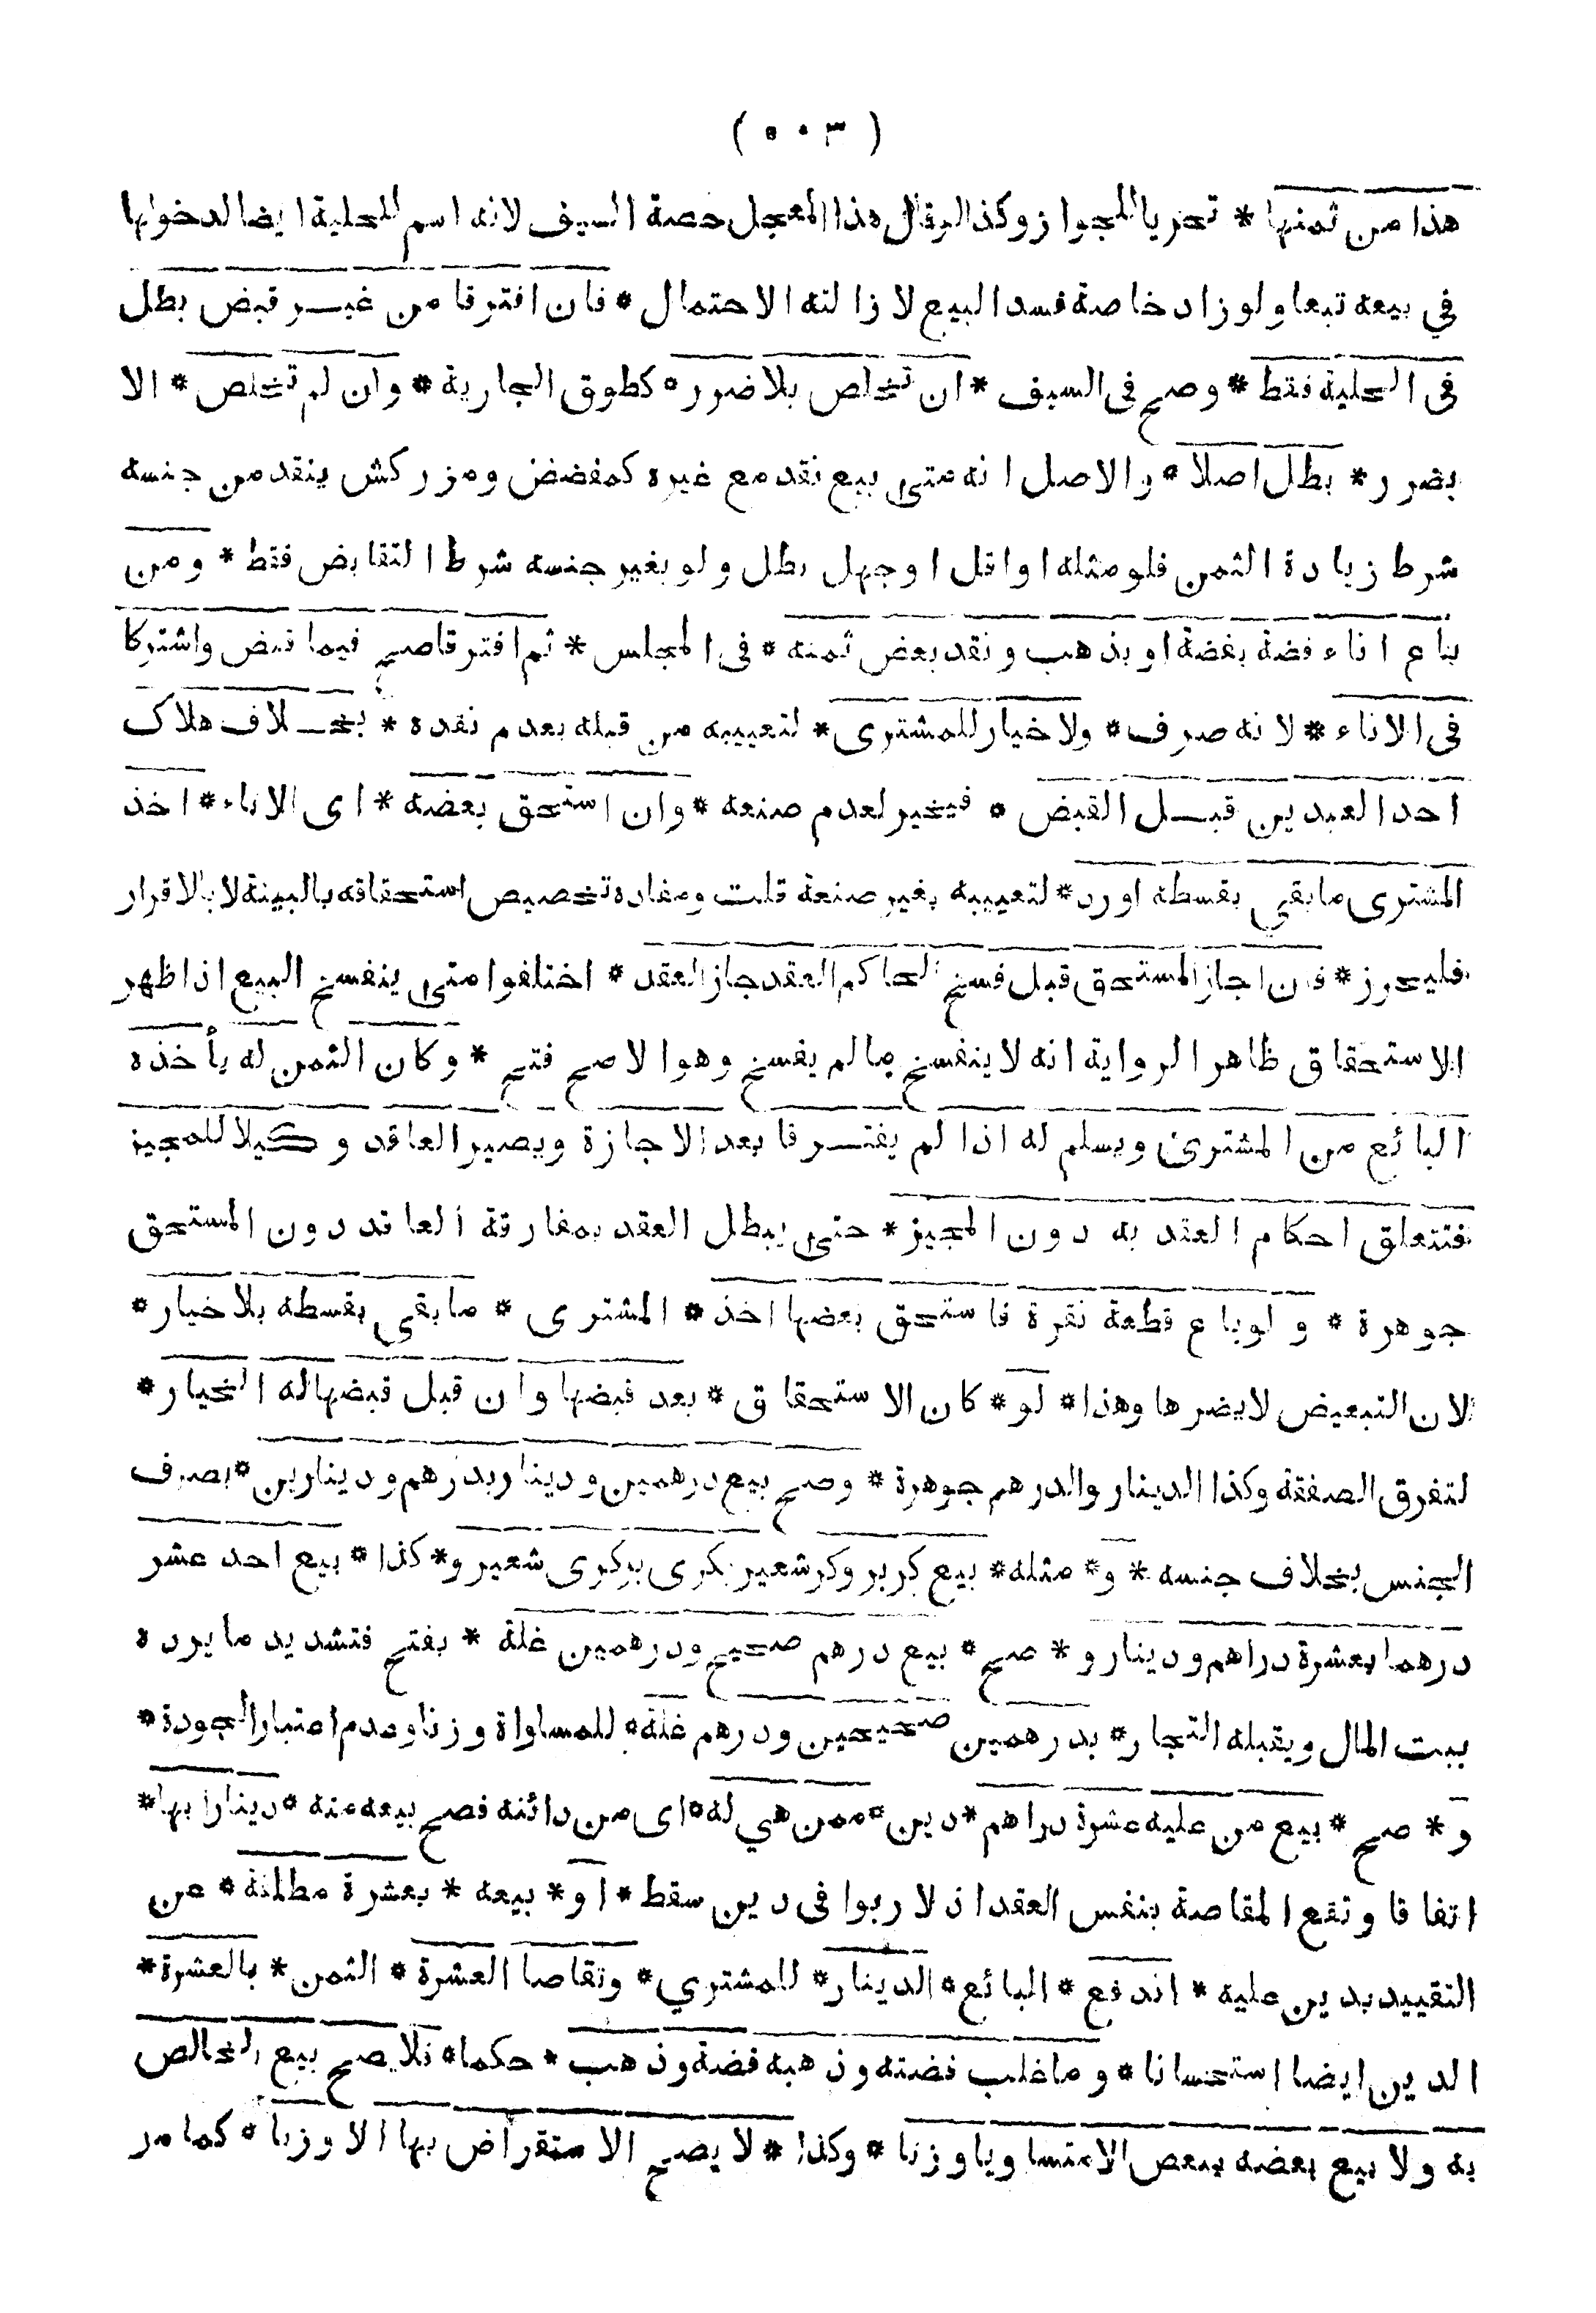 ( ٥٠٣ )
هذا من ثمنها * تحريا للجواز وكذا لو قال هذا المعجل حصة السيف لانه اسم للحلية ايضا لدخولها
في بيعه تبعا ولو زاد خاصة فسد البيع لازالته الاحتمال * فان افترقا من غير قبض بطل
فى الحلية فقط * وصح فى السيف * ان تخلص بلا ضرر * كطوق الجارية * وان لم تخلص * الا
بضرر * بطل اصلا * والاصل انه متى بيع نقد مع غيره كمفضض ومزركش ينقد من جنسه
شرط زيادة الثمن فلو مثله او اقل او جهل بطل ولو بغير جنسه شرط التقابض فقط * ومن
باع اناء فضة بفضة او بذهب ونقد بعض ثمنه * فى المجلس * ثم افترقا صح فيما قبض واشتركا
فى الاناء * لانه صرف * ولا خيار للمشترى * لتعييبه من قبله بعدم نقده * بخلاف هلاك
احد العبدين قبل القبض * فيخير لعدم صنعه * وان استحق بعضه * اى الاناء * اخذ
المشترى ما بقى بقسطه او رد * لتعييبه بغير صنعة قلت ومفاده تخصيص استحقاقه بالبينة لا بالاقرار
فليحرر * فان اجاز المستحق قبل فسخ الحاكم العقد جاز العقد * اختلفوا متى ينفسخ البيع اذا ظهر
الاستحقاق ظاهر الرواية انه لا ينفسخ ما لم يفسخ وهو الاصح فتح * وكان الثمن له يأخذه
البائع من المشترى ويسلم له اذا لم يفترقا بعد الاجازة ويصير العاقد وكيلا للمجيز
فتتعلق احكام العقد به دون المجيز * حتى يبطل العقد بمفارقة العاقد دون المستحق
جوهرة * ولو باع قطعة نقرة فاستحق بعضها اخذ * المشترى * ما بقى بقسطه بلا خيار *
لان التبعيض لا يضرها وهذا * لو * كان الاستحقاق * بعد قبضها وان قبل قبضها له الخيار *
لتفرق الصفقة وكذا الدينار والدرهم جوهرة * وصح بيع درهمين ودينار بدرهم ودينارين * بصرف
الجنس بخلاف جنسه * و * مثله * بيع كر بر وكر شعير بكرى بر كرى شعير و * كذا * بيع احد عشر
درهما بعشرة دراهم ودينار و * صح * بيع درهم صحيح ودرهمين غلة * بفتح فتشديد ما يرده
بيت المال ويقبله التجار * بدرهمين صحيحين ودرهم غلة * للمساواة وزنا وعدم اعتبار الجودة *
و * صح * بيع من عليه عشرة دراهم * دين * ممن هي له * اى من دائنه فصح بيعه منه * دينارا بها *
اتفاقا وتقع المقاصة بنفس العقد اذ لا ربوا فى دين سقط * او * بيعه * بعشرة مطلقة * عن
التقييد بدين عليه * ان دفع * البائع * الدينار * للمشتري * وتقاصا العشرة * الثمن * بالعشرة *
الدين ايضا استحسانا * وما غلب فضته وذهبه فضة وذهب * حكما * فلا يصح بيع الخالص
به ولا بيع بعضه ببعض الا متساويا وزنا * وكذا * لا يصح الاستقراض بها الا وزنا * كما مر